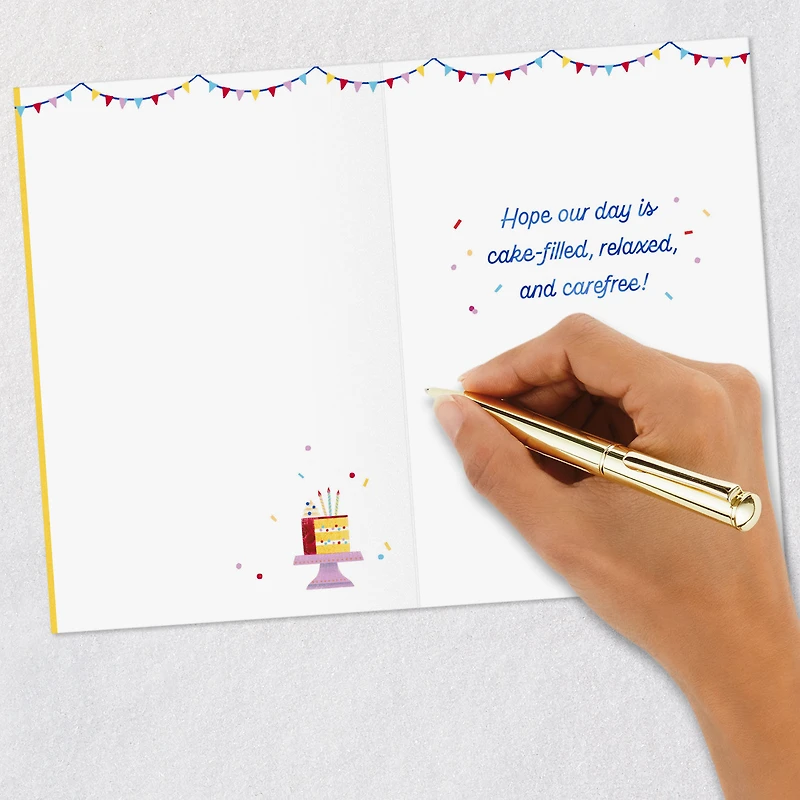 Hope our day is
cake-filled, relaxed,
and carefree!